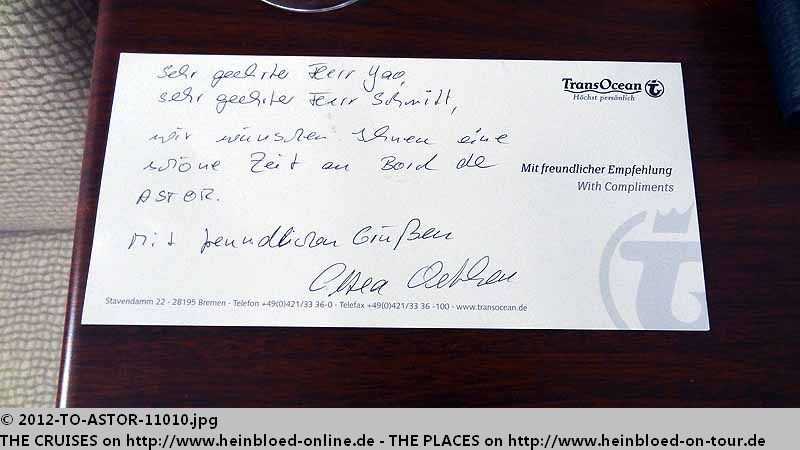 Sehr geehrter Herr Yao,
sehr geehrter Herr Schmitt,
wir wünschen Ihnen eine
schöne Zeit an Bord de
ASTOR.
Mit freundlichen Grüßen
TransOcean
Höchst persönlich
Mit freundlicher Empfehlung
With Compliments
Stavendamm 22 - 28195 Bremen - Telefon +49(0)421/33 36-0 - Telefax +49(0)421/33 36 -100 - www.transocean.de
© 2012-TO-ASTOR-11010.jpg
THE CRUISES on http://www.heinbloed-online.de - THE PLACES on http://www.heinbloed-on-tour.de